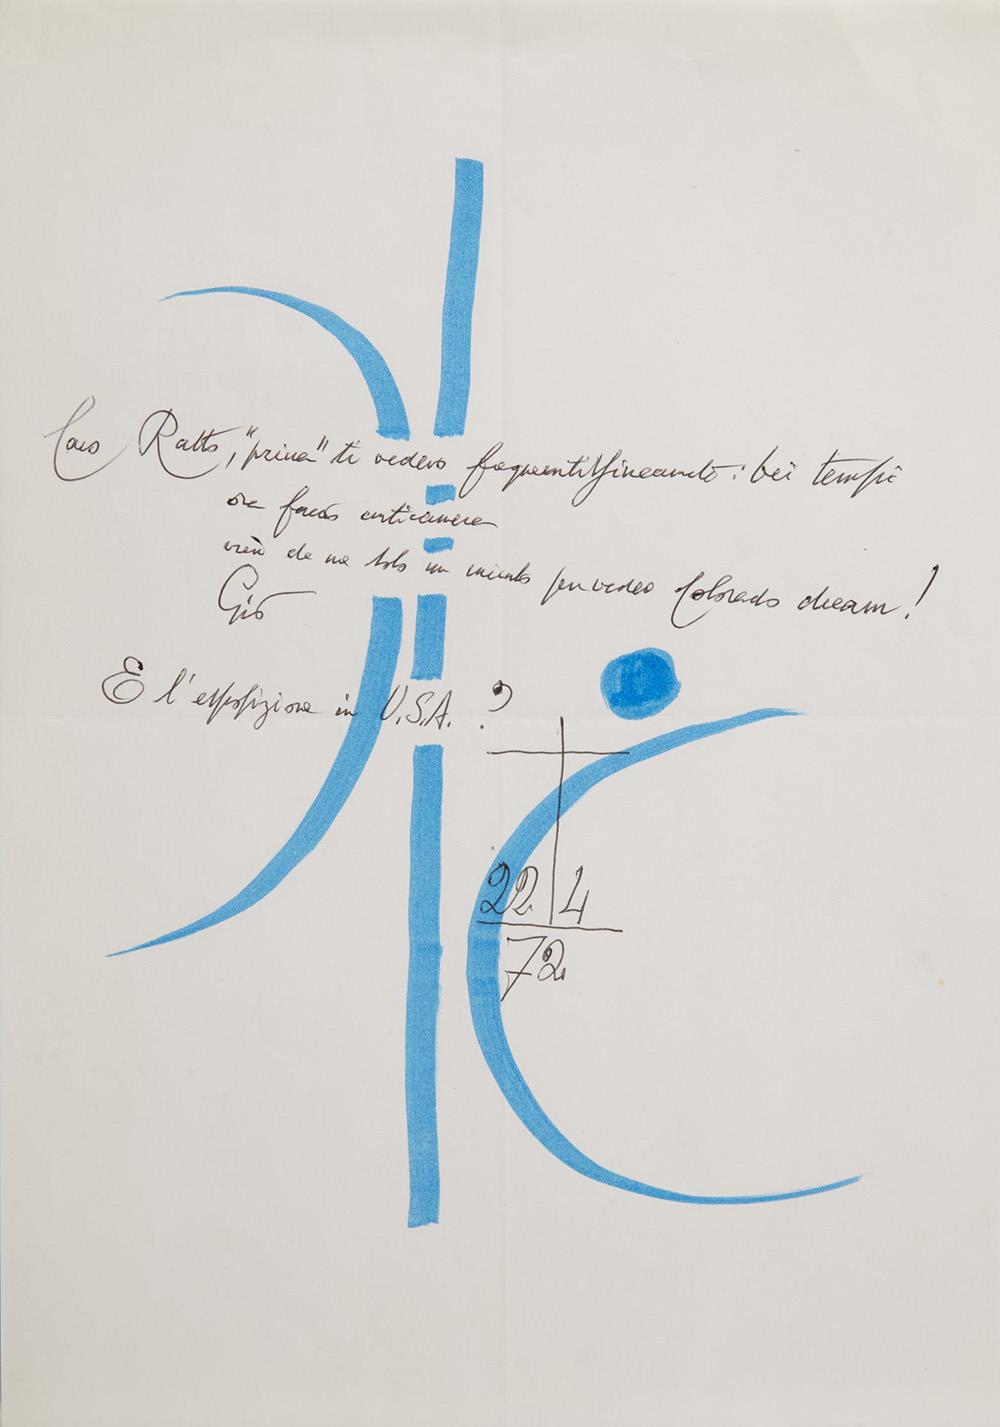 Caro Ratto, "prima" ti vedevo frequentissimamente: bei tempi
ora faccio anticamera
vieni da me solo un minuto per vedere Colorado dream!
Giò
E l'esposizione in U.S.A. ?
22 4
72